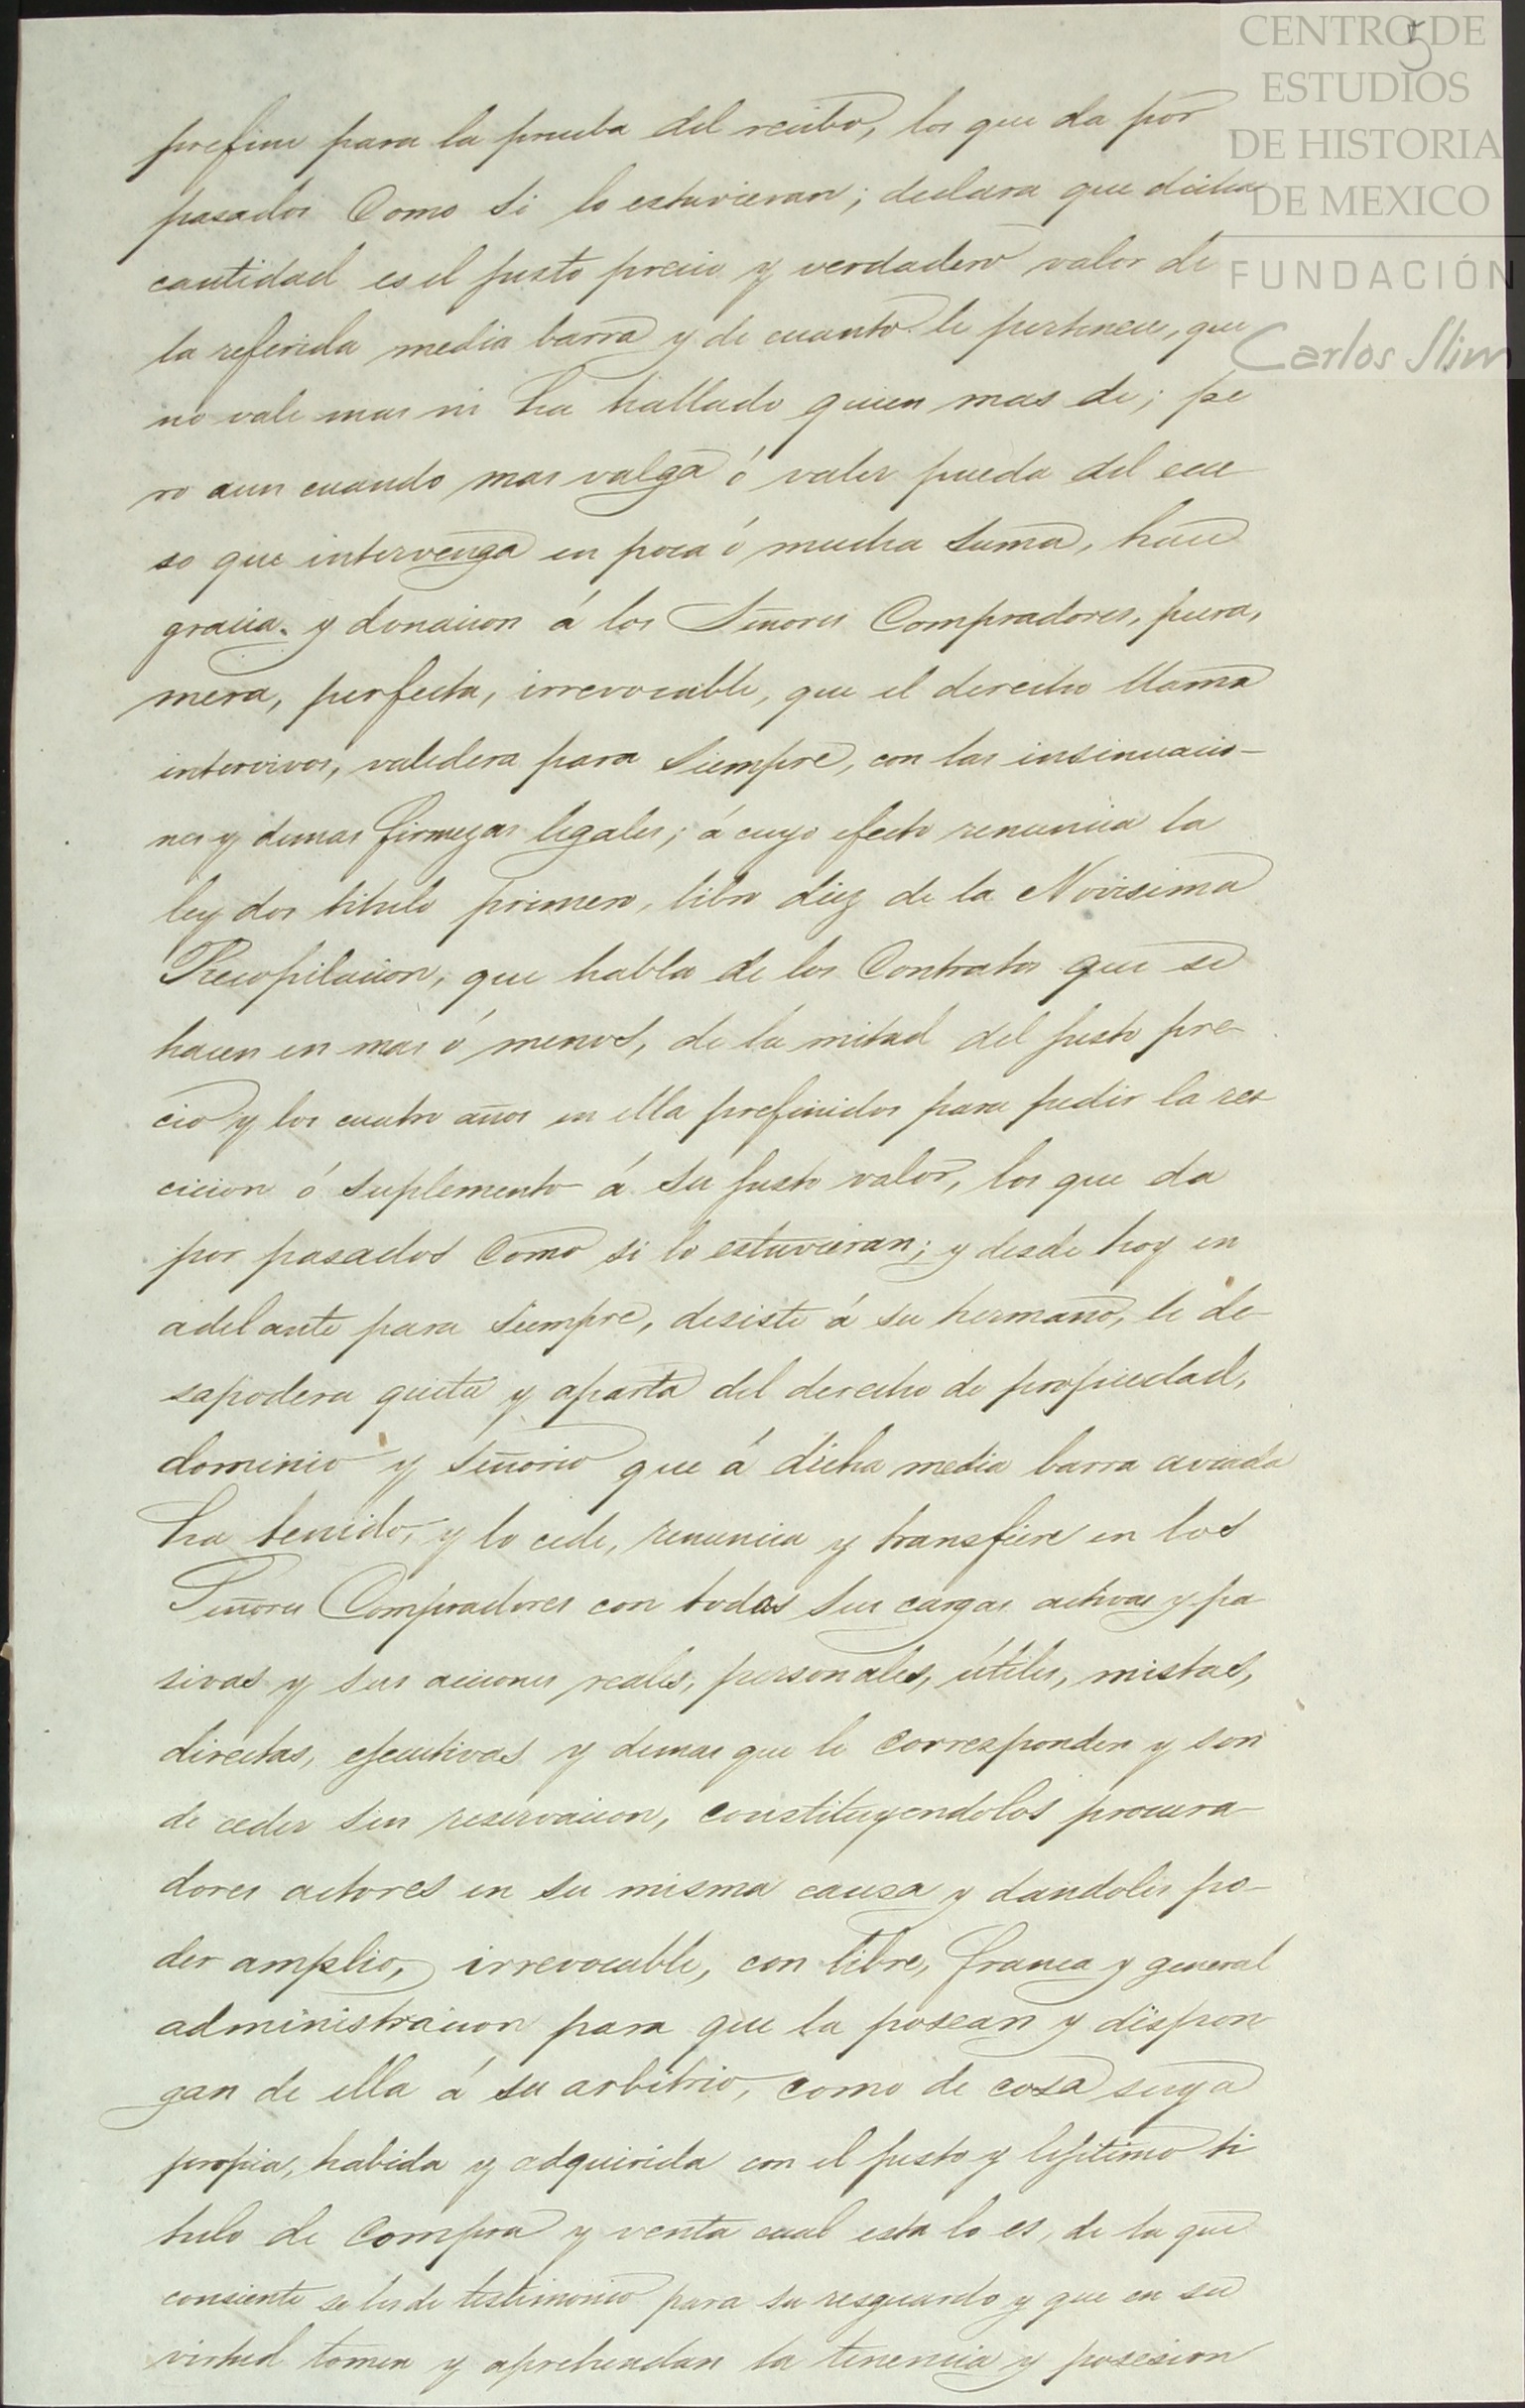 5
CENTRO DE
ESTUDIOS
DE HISTORIA
DE MEXICO
FUNDACIÓN
Carlos Slim
prefine para la prueba del recibo, los que da por
pasados Como si lo estuvieran; declara que dicha
cantidad es el justo precio y verdadero valor de
la referida media barra y de cuanto le pertenece, que
no vale mas ni ha hallado quien mas de; pe
ro aun cuando mas valga ó valer pueda del ece
so que intervenga en poca ó mucha suma, hace
gracia y donacion á los Señores Compradores, pura,
mera, perfecta, irrevocable, que el derecho llama
intervivos, valedera para siempre, con las insinuacio-
nes y demas firmezas legales; á cuyo efecto renuncia la
ley dos titulo primero, libro diez de la Novisima
Recopilacion, que habla de los Contratos que se
hacen en mas ó menos, de la mitad del justo pre-
cio y los cuatro años en ella prefinidos para pedir la res
cicion ó suplemento á su justo valor, los que da
por pasados Como si lo estuvieran; y desde hoy en
adelante para siempre, desiste á su hermano, le de-
sapodera quita y aparta del derecho de propiedad,
dominio y señorio que á dicha media barra aviada
ha tenido, y lo cede, renuncia y transfiere en los
Señores Compradores con todas sus cargas activas y pa
sivas y sus acciones reales, personales, útiles, mistas,
directas, ejecutivas y demas que le corresponden y son
de ceder sin reservacion, constituyendolos procura-
dores actores en su misma causa y dandoles po-
der amplio, irrevocable, con libre, franca y general
administracion para que la posean y dispon
gan de ella á su arbitrio, como de cosa suya
propia, habida y adquirida con el justo y lejitimo ti
tulo de Compra y venta cual esta lo es, de la que
consiente se les de testimonio para su resguardo y que en su
virtud tomen y aprehendan la tenencia y posesion